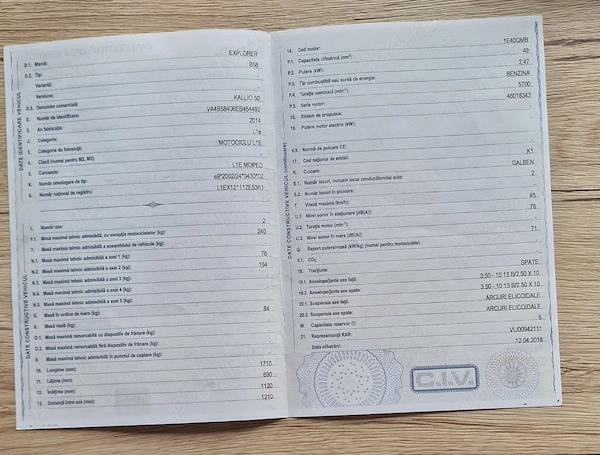 D.1. Marcă: EXPLORER
D.2. Tip: B58
Varianta: -
Versiune: -
D.3. Denumire comercială: KALLIO 50
E. Număr de identificare: VA4B58406EB464492
2. An fabricație: 2014
J. Categorie: L1e
3. Categorie de folosință: MOTOCICLU L1E
4. Clasă (numai pentru M2, M3): -
5. Caroserie: L1E MOPED
K. Număr omologare de tip: e9*2002/24*0430*02
6. Număr național de registru: L1EX121112E53K1
DATE IDENTIFICARE VEHICUL
L. Număr axe: 2
F.1. Masă maximă tehnic admisibilă, cu excepția motocicletelor (kg): 240
7. Masă maximă tehnic admisibilă a ansamblului de vehicule (kg): -
N.1. Masă maximă tehnic admisibilă a axei 1 (kg): 76
N.2. Masă maximă tehnic admisibilă a axei 2 (kg): 164
N.3. Masă maximă tehnic admisibilă a axei 3 (kg): -
N.4. Masă maximă tehnic admisibilă a axei 4 (kg): -
N.5. Masă maximă tehnic admisibilă a axei 5 (kg): -
G. Masă în ordine de mers (kg): 84
8. Masă reală (kg): -
O.1. Masă maximă remorcabilă cu dispozitiv de frânare (kg): -
O.2. Masă maximă remorcabilă fără dispozitiv de frânare (kg): -
9. Masă maximă tehnic admisibilă în punctul de cuplare (kg): -
10. Lungime (mm): 1710
11. Lățime (mm): 690
12. Înălțime (mm): 1120
13. Distanță între axe (mm): 1210
DATE CONSTRUCTIVE VEHICUL
14. Cod motor: 1E40QMB
P.1. Capacitate cilindrică (cm³): 49
P.2. Putere (kW): 2,47
P.3. Tip combustibil sau sursă de energie: BENZINA
P.4. Turație nominală (min⁻¹): 5700
P.5. Serie motor: 46018343
15. Sistem de propulsie: -
16. Putere motor electric (kW): -
V.9. Normă de poluare CE: -
17. Cod național de emisii: K1
R. Culoare: GALBEN
S.1. Număr locuri, inclusiv locul conducătorului auto: 2
S.2. Număr locuri în picioare: -
T. Viteză maximă (km/h): 45
U.1. Nivel sonor în staționare [dB(A)]: 76
U.2. Turație motor (min⁻¹): -
U.3. Nivel sonor în mers [dB(A)]: 71
Q. Raport putere/masă (kW/kg) (numai pentru motociclete): -
V.7. CO₂: -
18. Tracțiune: SPATE
19.1. Anvelope/jante axe față: 3.50 - 10.13 B/2.50 X 10
19.2. Anvelope/jante axe spate: 3.50 - 10.13 B/2.50 X 10
20.1. Suspensie axe față: ARCURI ELICOIDALE
20.2. Suspensie axe spate: ARCURI ELICOIDALE
W. Capacitate rezervor (l): 6
21. Reprezentanță RAR:
Data eliberării: 12.04.2018
DATE CONSTRUCTIVE VEHICUL (continuare)
C.I.V.